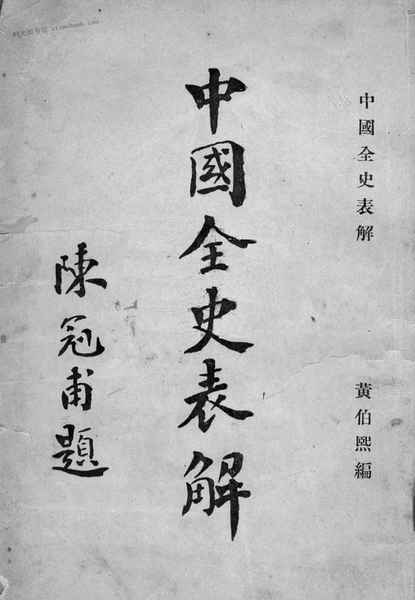 中國全史表解
黃伯熙編
中國全史表解
陳冠甫題